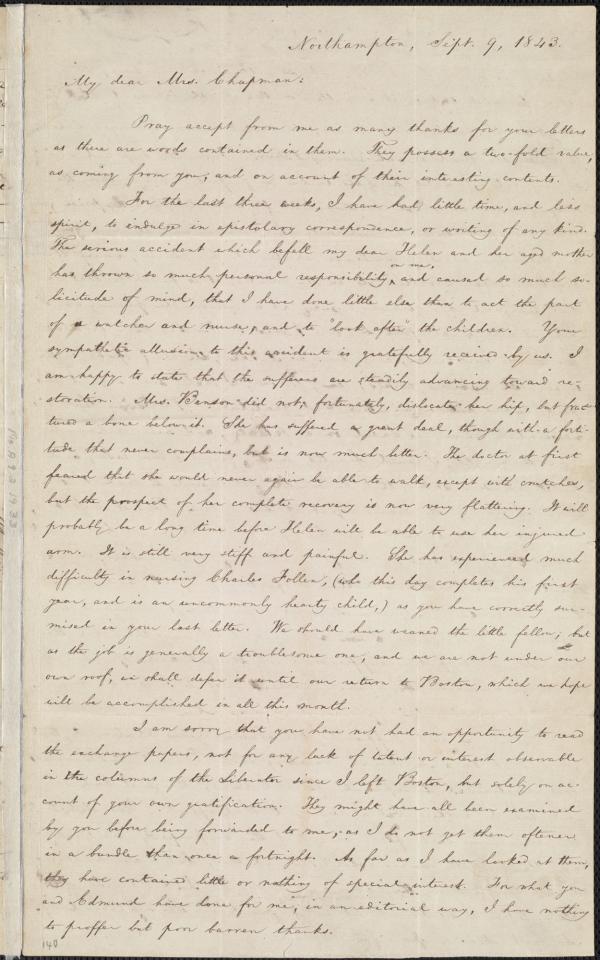 Northampton, Sept. 9, 1843.
My dear Mrs. Chapman:
Pray accept from me as many thanks for your letters
as there are words contained in them. They possess a two-fold value,
as coming from you, and on account of their interesting contents.
For the last three weeks, I have had little time, and less
spirit, to indulge in epistolary correspondence, or writing of any kind.
The serious accident which befell my dear Helen and her aged mother
has thrown so much personal responsibility on me, and caused so much so-
licitude of mind, that I have done little else than to act the part
of a watcher and nurse, and to "look after" the children. Your
sympathetic allusion to this accident is gratefully received by us. I
am happy to state that the sufferers are steadily advancing toward re-
storation. Mrs. Benson did not, fortunately, dislocate her hip, but frac-
tured a bone below it. She has suffered a great deal, though with a forti-
tude that never complains, but is now much better. The doctor at first
feared that she would never again be able to walk, except with crutches,
but the prospect of her complete recovery is now very flattering. It will
probably be a long time before Helen will be able to use her injured
arm. It is still very stiff and painful. She has experienced much
difficulty in nursing Charles Follen, (who this day completes his first
year, and is an uncommonly hearty child,) as you have correctly sur-
mised in your last letter. We should have weaned the little fellow; but
as the job is generally a troublesome one, and we are not under our
own roof, we shall defer it until our return to Boston, which we hope
will be accomplished in all this month.
I am sorry that you have not had an opportunity to read
the exchange papers, not for any lack of talent or interest observable
in the columns of the Liberator since I left Boston, but solely on ac-
count of your own gratification. They might have all been examined
by you before being forwarded to me, as I do not get them oftener
in a bundle than once a fortnight. As far as I have looked at them,
they have contained little or nothing of special interest. For what you
and Edmund have done for me, in an editorial way, I have nothing
to proffer but poor barren thanks.
140